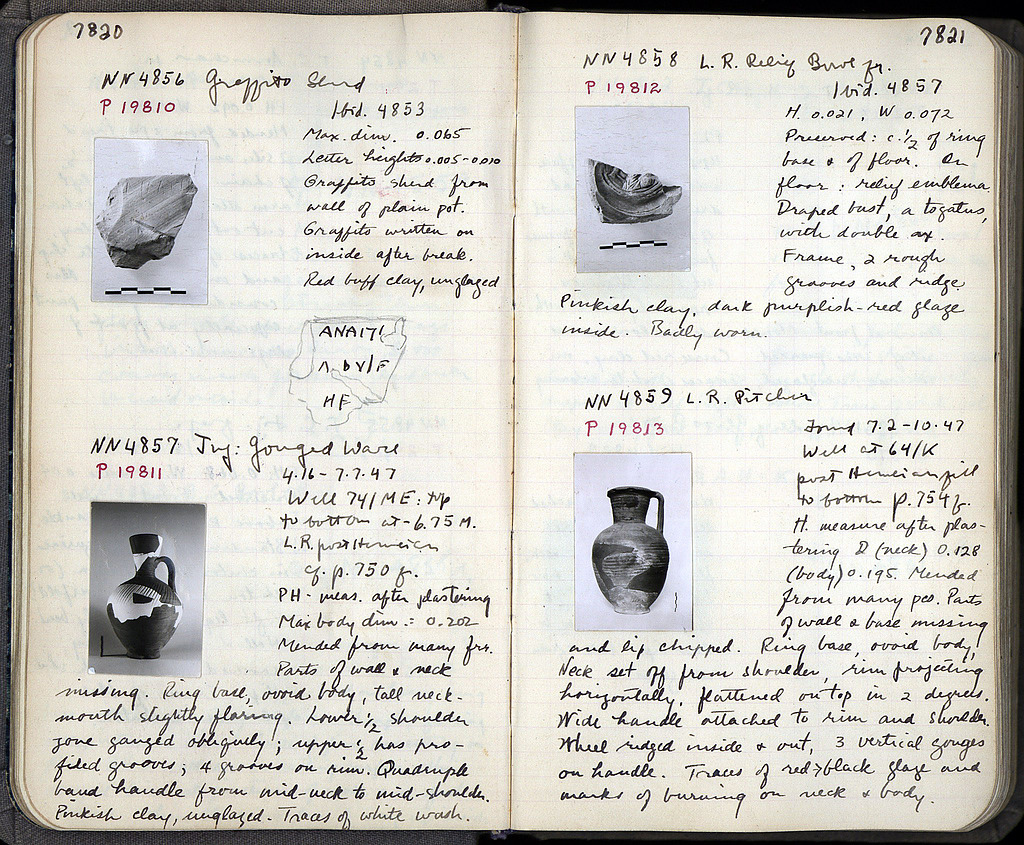 7820
NN 4856 Graffito Sherd
P 19810
Ibid. 4853
Max. dim. 0.065
Letter heights 0.005-0.010
Graffito sherd from
wall of plain pot.
Graffito written on
inside after break.
Red buff clay, unglazed
HF
NN 4857 Jug: Gouged Ware
P 19811
4.16-7.7.47
Well 74/ME: top
to bottom at -6.75 M.
L.R. post Herulian
cf. p. 750 f.
PH - meas. after plastering
Max body dim.: 0.202
Mended from many frs.
Parts of wall & neck
missing. Ring base, ovoid body, tall neck.
mouth slightly flaring. Lower ½ shoulder
zone gauged obliquely; upper ½ has pro-
filed grooves; 4 grooves on rim. Quadruple
band handle from mid-neck to mid-shoulder.
Pinkish clay, unglazed. Traces of white wash.
7821
NN 4858 L.R. Relief Bowl fr.
P 19812
Ibid. 4857
H. 0.021, W 0.072
Preserved: c. ½ of ring
base & of floor. On
floor: relief emblema.
Draped bust, a togatus,
with double ax.
Frame, 2 rough
grooves and ridge
Pinkish clay, dark purplish-red glaze
inside. Badly worn.
NN 4859 L.R. Pitcher
P 19813
Found 7.2-10.47
Well at 64/K
post Herulian fill
to bottom p. 754 f.
H. measure after plas-
tering D (neck) 0.128
(body) 0.195. Mended
from many pcs. Parts
of wall & base missing
and lip chipped. Ring base, ovoid body,
Neck set off from shoulder, rim projecting
horizontally, flattened on top in 2 degrees.
Wide handle attached to rim and shoulder.
Wheel ridged inside & out, 3 vertical gouges
on handle. Traces of red>black glaze and
marks of burning on neck & body.